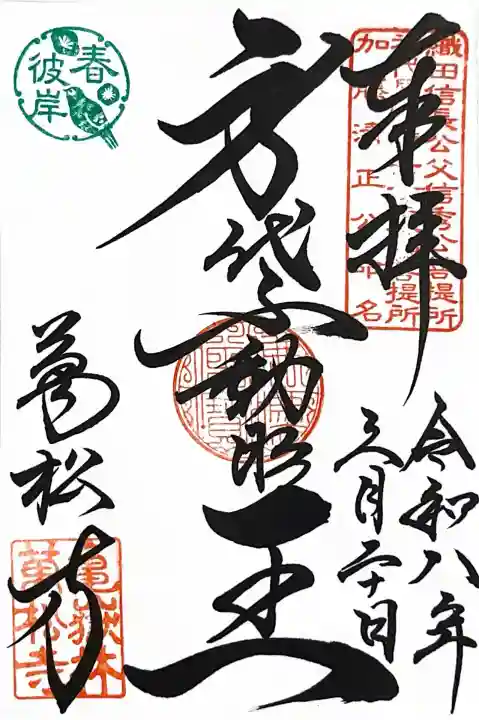 奉拝
織田信長公父信秀公菩提所
加藤清正公命名
令和八年
三月二十日
身代不動明王
春
彼岸
萬松寺
亀嶽林
萬松寺